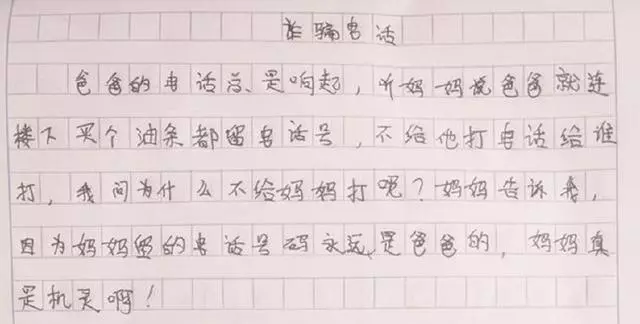 诈骗电话
爸爸的电话总是响起，听妈妈说爸爸就连
楼下买个油条都留电话号，不给他打电话给谁
打，我问为什么不给妈妈打呢？妈妈告诉我，
因为妈妈留的电话号码永远是爸爸的，妈妈真
是机灵啊！